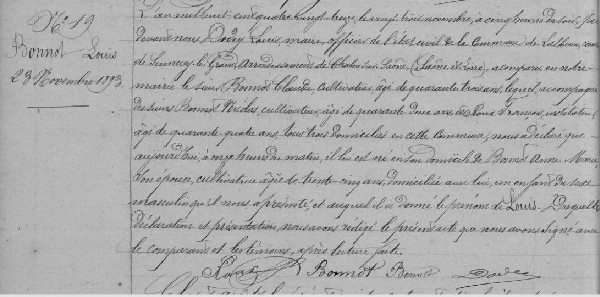 N° 19
Bonnot Louis
23 Novembre 1893
L'an mil huit cent quatre vingt treize, le vingt trois novembre, à cinq heures du soir, par
devant nous Louis, maire, officier de l'état civil de la Commune de canton
de Sennecey le Grand, Arrondissement de Chalon sur Saône, (Saône et Loire) a comparu en notre
mairie le sieur Bonnot Claude, Cultivateur, âgé de quarante trois ans, lequel, accompagné
des sieurs Bonnot Nicolas, cultivateur, âgé de quarante deux ans, et François, instituteur,
âgé de quarante quatre ans, tous trois domiciliés en cette Commune, nous a déclaré que
aujourd'hui, à onze heures du matin, il lui est né en son domicile de Bonnot Anne Marie
son épouse, cultivatrice âgée de trente cinq ans, domiciliée avec lui, un enfant du sexe
masculin qu'il nous a présenté, et auquel il a donné le prénom de Louis. Desquelles
déclaration et présentation, nous avons rédigé le présent acte que nous avons signé avec
le comparant et les témoins, après lecture faite.
Bonnot Bonnot